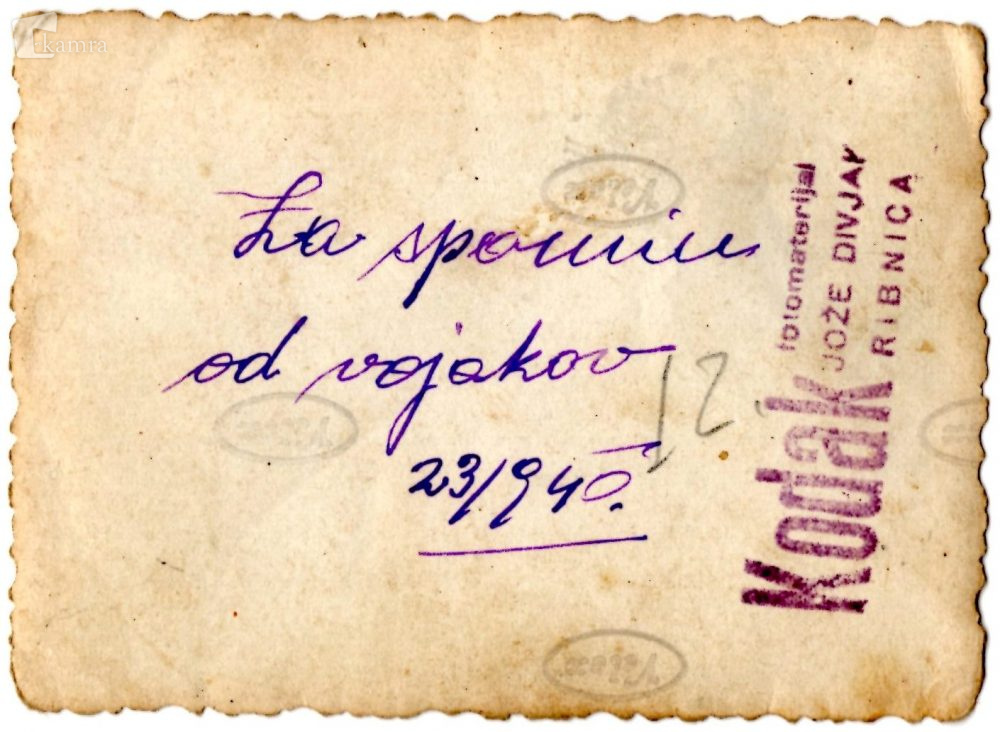 kamra
Za spomin
od vojakov
23/940.
12
Kodak
fotomaterijal
JOŽE DIVJAK
RIBNICA
Velox
Velox
Velox